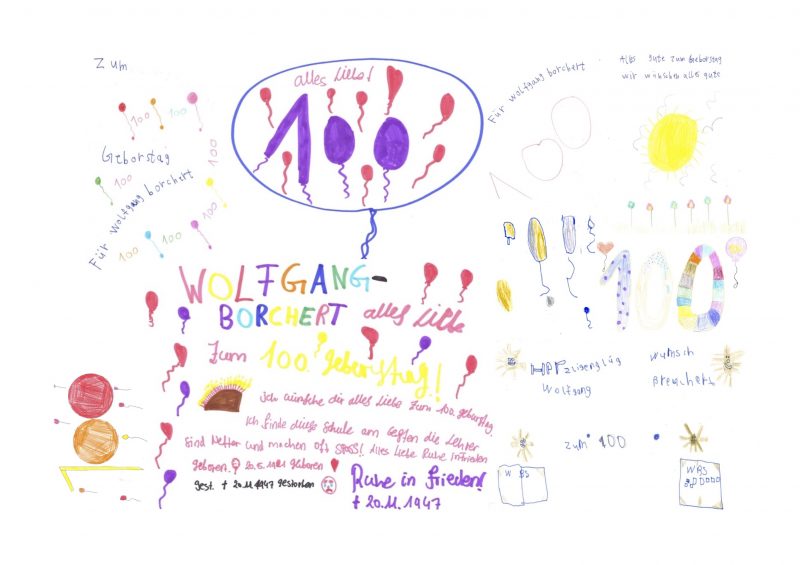 Zum
100 100
100
Geborstag
100
100
100
100
Für Wolfgang borchert
alles Liebe!
100
WOLFGANG-
BORCHERT alles Liebe
Zum 100. geburtstag!
Ich wünsche dir alles Liebe Zum 100. geburtstag.
Ich finde diese Schule am besten die Lehrer
sind Netter und machen oft SPASS! Alles Liebe Ruhe in frieden
geboren: 20.5.1921 geboren
gest. † 20.11.1947 gestorben
Ruhe in frieden!
† 20.11.1947
Für Wolfgang borchert
100
Alles gute zum Geborstag
wir wünschen alles gute
100
Wolfgang
wunsch
zum 100
WBS
WBS